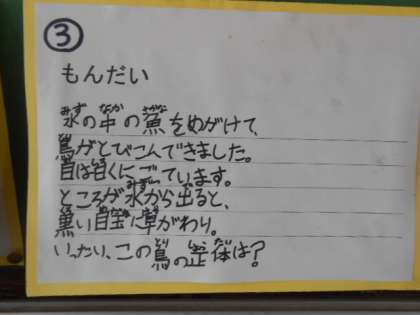 ③
もんだい
水の中の魚をめがけて、
鳥がとびこんできました。
目は白くにごっています。
ところが水から出ると、
黒い目玉に早がわり。
いったい、この鳥の正体は？